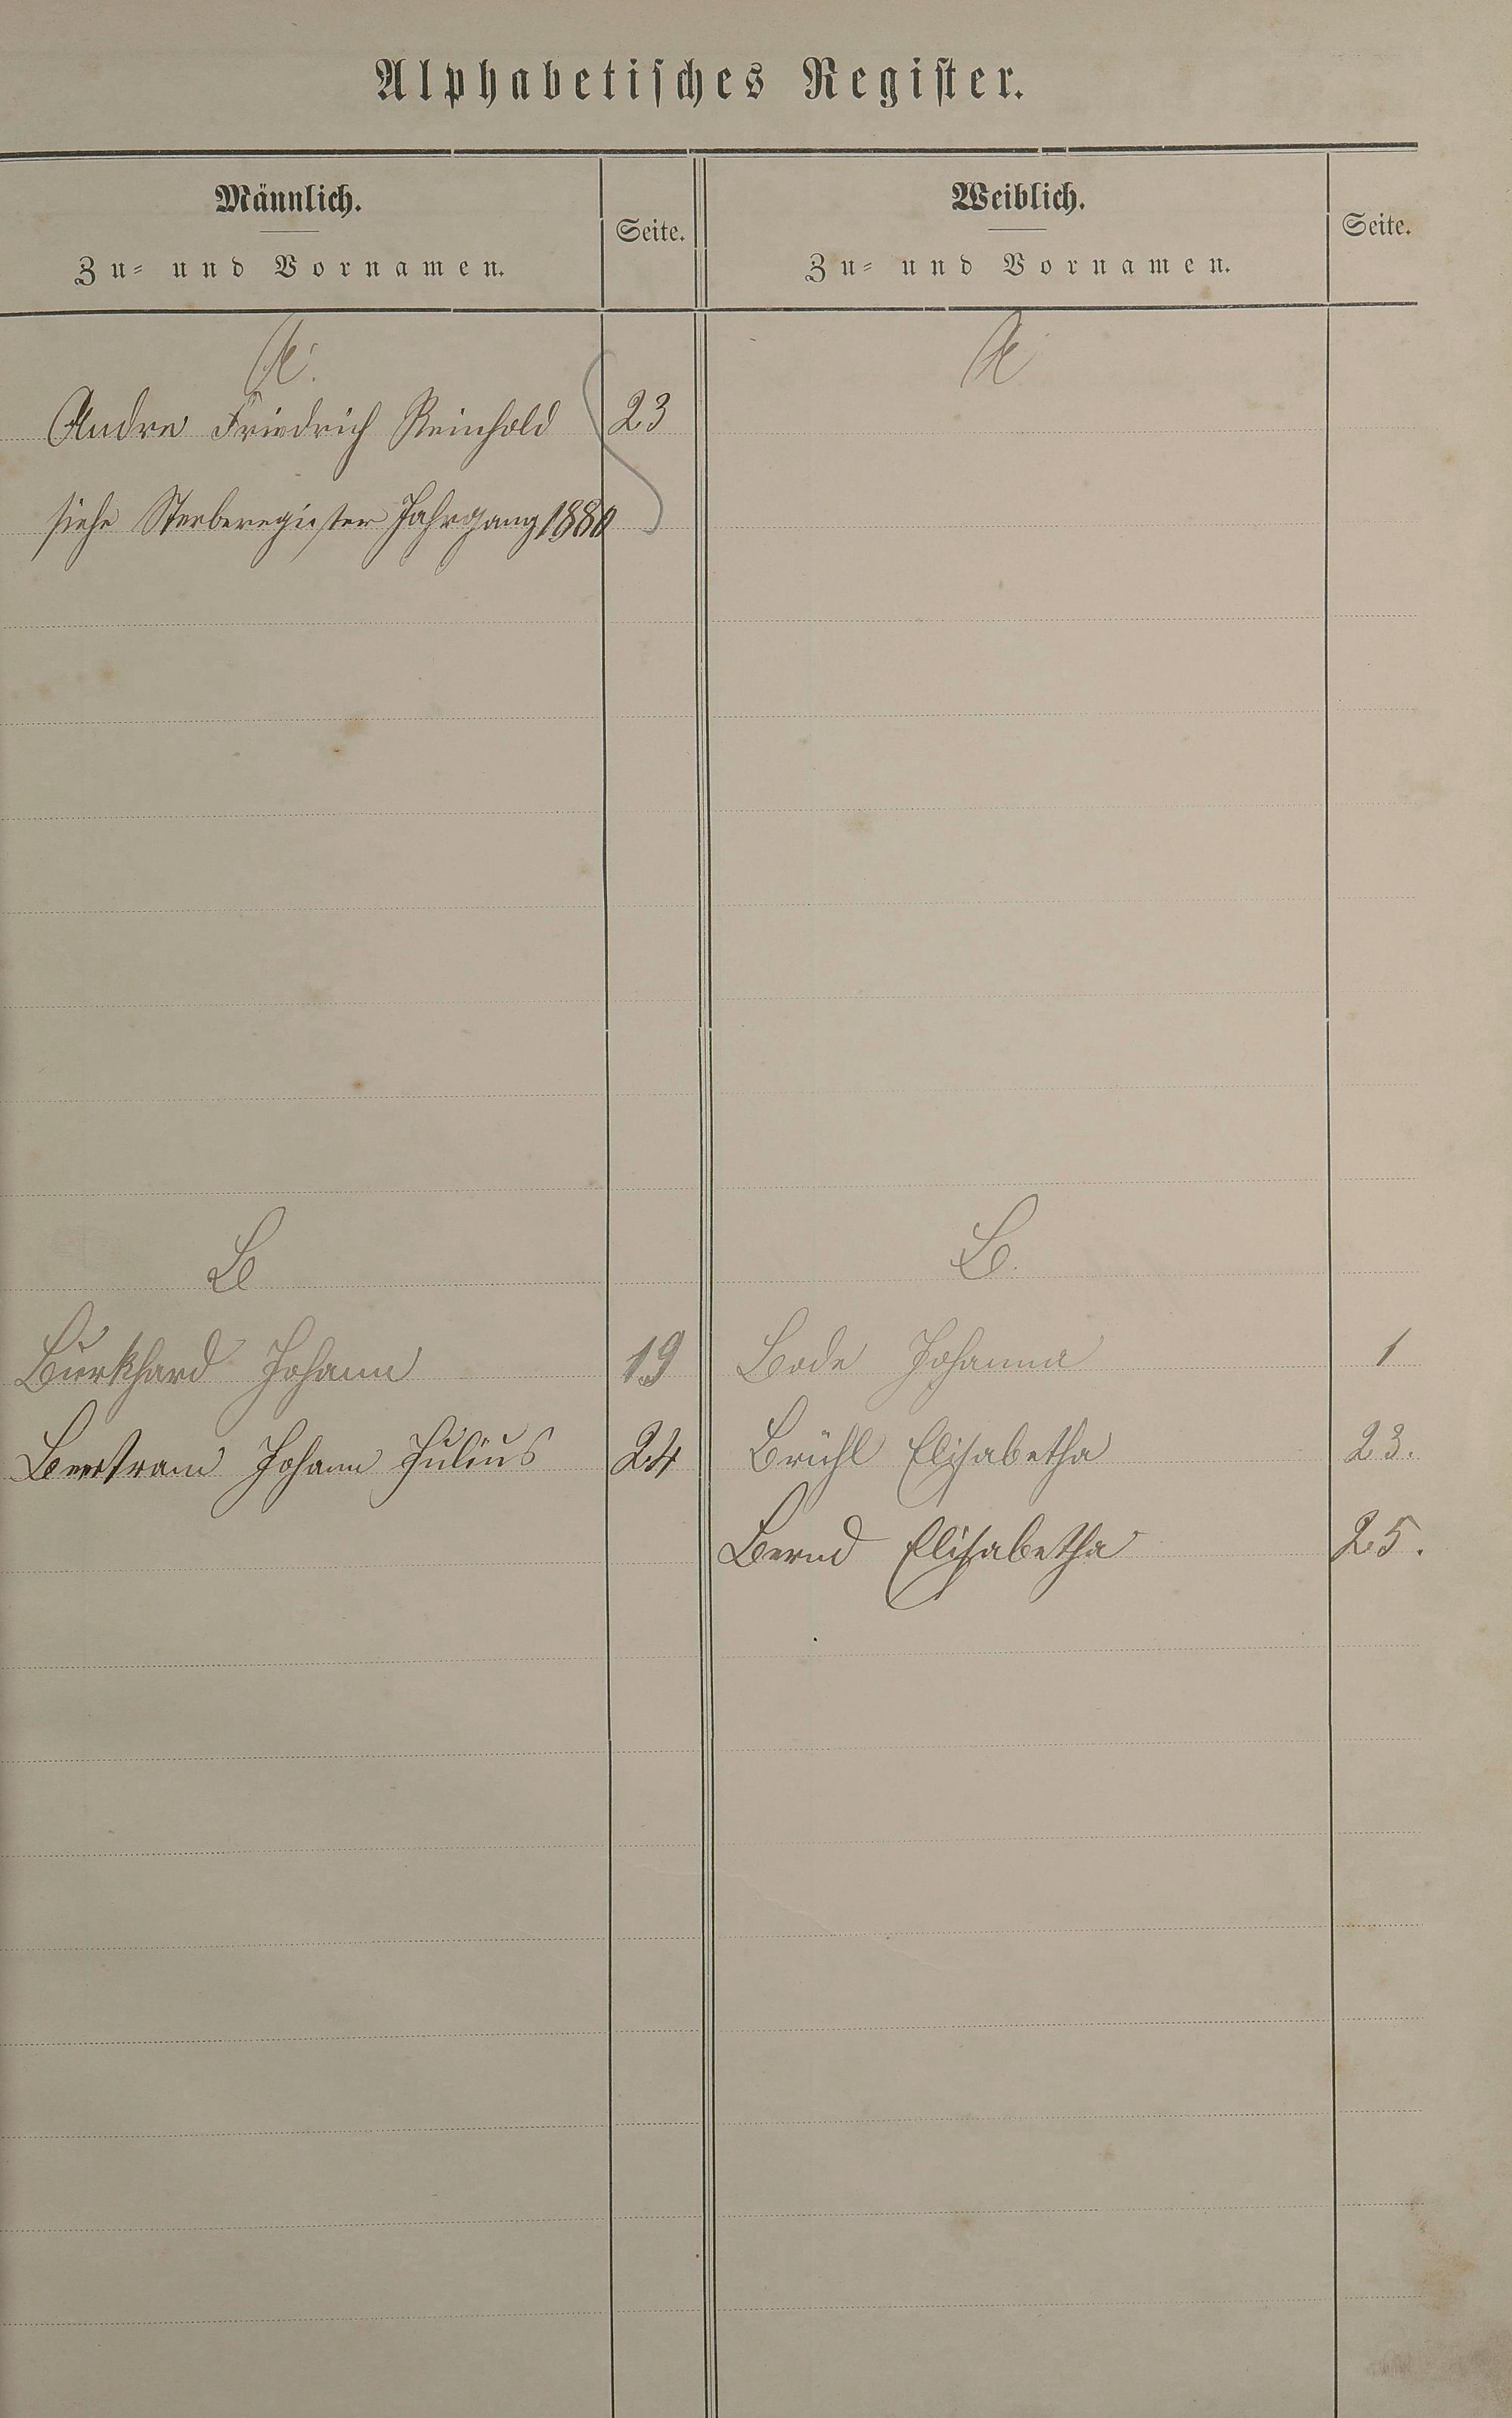 Alphabetisches Register.
Männlich.
Zu- und Vornamen.
Seite.
Weiblich.
Zu- und Vornamen.
Seite.
A.
Andre Friedrich Reinhold 23
siehe Sterberegister Jahrgang 1880
A
B
Burkhard Johann 19
Bertram Johann Julius 24
B.
Bode Johanna 1
Brühl Elisabetha 23.
Bernd Elisabetha 25.